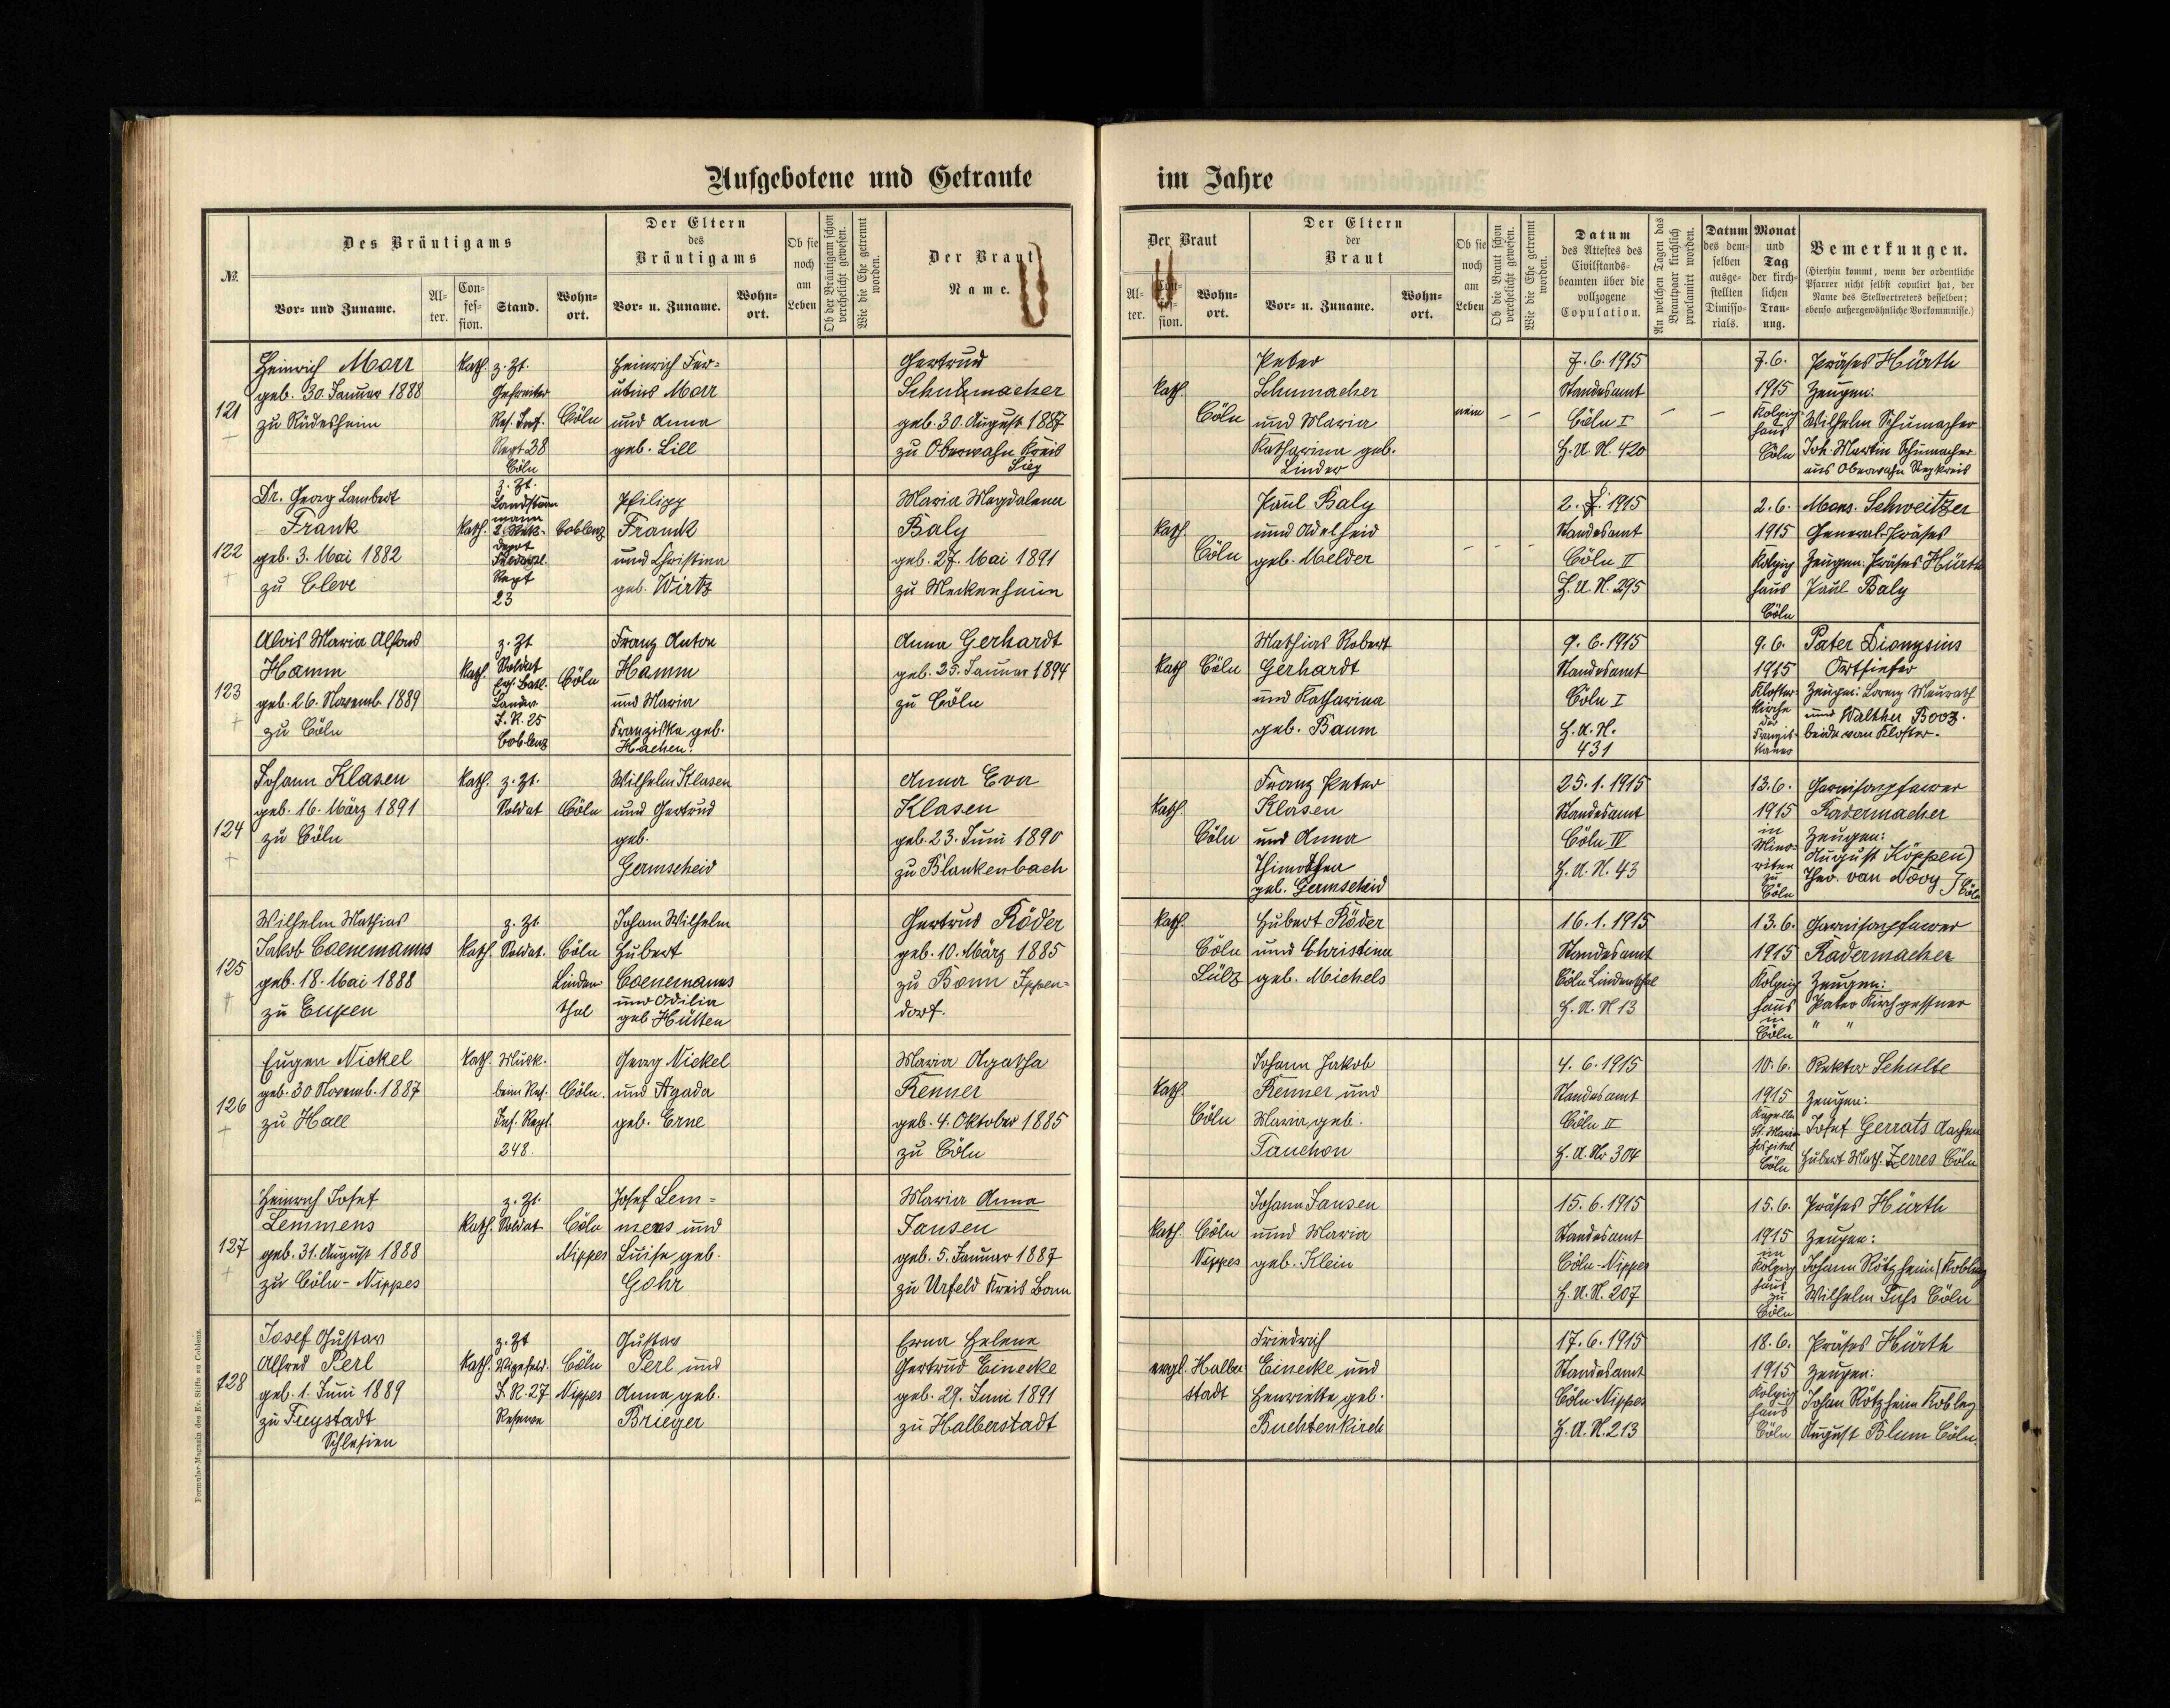 Aufgebotene und Getraute
im Jahre
№.
Des Bräutigams
Vor- und Zuname.
Al-
ter.
Con-
fes-
sion.
Stand.
Wohn-
ort.
Der Eltern
des
Bräutigams
Vor- u. Zuname.
Wohn-
ort.
Ob sie
noch
am
Leben
Ob der Bräutigam schon
verehelicht gewesen.
Wie die Ehe getrennt
worden.
Der Braut
Name.
Der Braut
Al-
ter.
Con-
fes-
sion.
Wohn-
ort.
Der Eltern
der
Braut
Vor- u. Zuname.
Wohn-
ort.
Ob sie
noch
am
Leben
Ob die Braut schon
verehelicht gewesen.
Wie die Ehe getrennt
worden.
Datum
des Attestes des
Civilstands-
beamten über die
vollzogene
Copulation.
An welchen Tagen das
Brautpaar kirchlich
proclamirt worden.
Datum
des dem-
selben
ausge-
stellten
Dimisso-
rials.
Monat
und
Tag
der kirch-
lichen
Trau-
ung.
Bemerkungen.
(Hierhin kommt, wenn der ordentliche
Pfarrer nicht selbst copulirt hat, der
Name des Stellvertreters desselben;
ebenso außergewöhnliche Vorkommnisse.)
121
Heinrich Marr
geb. 30. Januar 1888
zu Rüdesheim
kath.
z. Zt.
Gefreiter
Res. Inf.
Regt 28
Cöln
Cöln
Heinrich
Marr
und Anna
geb. Lill
Gertrud
Schuhmacher
geb. 30. August 1887
zu Oberwahn Kreis
Sieg
kath.
Cöln
Peter
Schumacher
und Maria
Katharina geb.
Linder
nein
– –
7. 6. 1915
Standesamt
Cöln I
H. U. N. 420
– –
7. 6.
1915
Kolping-
haus
Cöln
Präses Hürth
Zeugen:
Wilhelm Schumacher
Joh. Martin Schumacher
aus Oberwahn Siegkreis
122
Dr. Georg Lambert
Frank
geb. 3. Mai 1882
zu Cleve
kath.
z. Zt.
Landsturm
mann
Regt
23
Coblenz
Philipp
Frank
und Christina
geb. Wirtz
Maria Magdalena
Baly
geb. 27. Mai 1891
zu Meckenheim
kath.
Cöln
Paul Baly
und Adelheid
geb. Melder
– – –
2. 6. 1915
Standesamt
Cöln II
H. U. N. 295
2. 6.
1915
Kolping
haus
Cöln
Mons. Schweitzer
General-Präses
Zeugen: Präses Hürth
Paul Baly
123
Alois Maria Alfons
Hamm
geb. 26. Novemb. 1889
zu Cöln
kath.
z. Zt
Soldat
Ers. Batl.
Landw.
I. R. 25
Coblenz
Cöln
Franz Anton
Hamm
und Maria
Franziska geb.
Hachen.
Anna Gerhardt
geb. 25. Januar 1894
zu Cöln
kath
Cöln
Mathias Robert
Gerhardt
und Katharina
geb. Baum
9. 6. 1915
Standesamt
Cöln I
H. U. N.
431
9. 6.
1915
Kloster-
kirche
der
Franzis-
kaner
Pater Dionysius
Ortsiefer
Zeugen: Lorenz Meurath
und Walther Booz.
beide vom Kloster.
124
Johann Klasen
geb. 16. März 1891
zu Cöln
kath.
z. Zt.
Soldat
Cöln
Wilhelm Klasen
und Gertrud
geb.
Germscheid
Anna Eva
Klasen
geb. 23. Juni 1890
zu Blankenbach
kath.
Cöln
Franz Peter
Klasen
und Anna
Thimothea
geb. Germscheid
25. 1. 1915
Standesamt
Cöln IV
H. U. N. 43
13. 6.
1915
in
Mino-
riten
zu
Cöln
Garnisonpfarrer
Radermacher
Zeugen:
August Köppen
Theo. van Nooy
Cöln
125
Wilhelm Mathias
Jakob Coenemanns
geb. 18. Mai 1888
zu Eupen
kath.
z. Zt
Soldat.
Cöln
Linden
thal
Johann Wilhelm
Hubert
Coenemanns
und Odilia
geb Hütten
Gertrud Röder
geb. 10. März 1885
zu Bonn Ippen-
dorf.
kath.
Cöln
Sülz
Hubert Röder
und Christina
geb. Michels
16. 1. 1915
Standesamt
Cöln Lindenthal
H. U. N 13
13. 6.
1915
Kolping
haus
in
Cöln
Garnisonpfarrer
Radermacher
Zeugen:
Pater Kirchgessner
" "
126
Eugen Nickel
geb. 30 Novemb. 1887
zu Hall
kath.
Musk.
beim Res.
Inf. Regt.
248.
Cöln.
Georg Nickel
und Agada
geb. Erne
Maria Agatha
Renner
geb. 4. Oktober 1885
zu Cöln
kath.
Cöln
Johann Jakob
Renner und
Maria geb.
Fauchon
4. 6. 1915
Standesamt
Cöln II
H. U. Nr 304
10. 6.
1915
Kapelle
St. Marien
hospital
Cöln
Rektor Schulte
Zeugen:
Josef Gerrats Aachen
Hubert Math. Zerres Cöln
127
Heinrich Josef
Lemmens
geb. 31. August 1888
zu Cöln-Nippes
kath.
z. Zt.
Soldat
Cöln
Nippes
Josef Lem-
mens und
Luise geb.
Gohr
Maria Anna
Jansen
geb. 5. Januar 1887
zu Urfeld Kreis Bonn
kath.
Cöln
Nippes
Johann Jansen
und Maria
geb. Klein
15. 6. 1915
Standesamt
Cöln-Nippes
H. U. N. 207
15. 6.
1915
im
Kolping
haus
zu
Cöln
Präses Hürth
Zeugen:
Johann Rötzheim Koblenz
Wilhelm Cöln
128
Josef Gustav
Alfred Perl
geb. 1. Juni 1889
zu Freystadt
Schlesien
kath.
z. Zt
Vizefeld.
I. R. 27
Reserve
Cöln
Nippes
Gustav
Perl und
Anna geb.
Brieger
Erna Helene
Gertrud Einecke
geb. 29. Juni 1891
zu Halberstadt
evgl.
Halber
stadt
Friedrich
Einecke und
Henriette geb.
Buchtenkirch
17. 6. 1915
Standesamt
Cöln-Nippes
H. U. N. 213
18. 6.
1915
Kolping
haus
Cöln
Präses Hürth
Zeugen:
Johan Rötzheim Koblenz
August Blum Cöln.
Formular-Magazin des Ev. Stifts zu Coblenz.